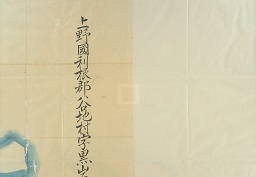 上野國利根郡谷地村字黒山